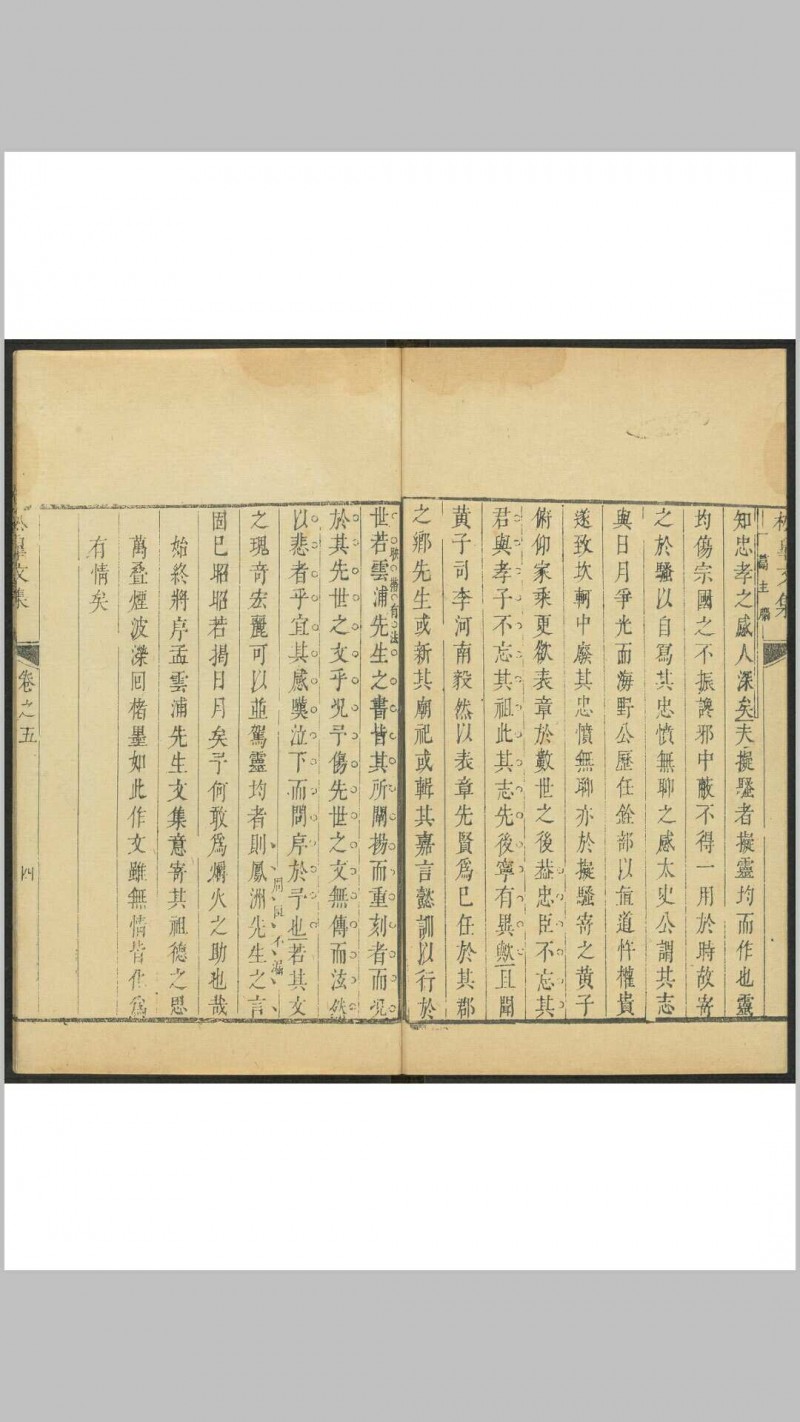 文集
一篇主腦
知忠孝之感人深矣夫擬騷者擬靈均而作也靈
均傷宗國之不振讒邪中蔽不得一用於時故寄
之於騷以自寫其忠憤無聊之感太史公謂其志
與日月爭光而海野公歷任銓部以直道忤權貴
遂致坎軻中廢其忠憤無聊亦於擬騷寄之黃子
俯仰家乘更欲表章於數世之後葢忠臣不忘其
君與孝子不忘其祖此其志先後寧有異歟且聞
黃子司李河南毅然以表章先賢爲己任於其郡
之鄉先生或新其廟祀或輯其嘉言懿訓以行於
世若雲浦先生之書皆其所闡揚而重刻者而况
有法
於其先世之文乎况予傷先世之文無傳而泫然
以悲者乎宜其感嘆泣下而問序於予也若其文
周匝不漏
之瑰奇宏麗可以並駕靈均者則鳳洲先生之言
固已昭昭若揭日月矣予何敢爲爝火之助也哉
始終將序孟雲浦先生文集意寄其祖德之思
萬叠煙波瀠回楮墨如此作文雖無情皆化爲
有情矣
文集
卷之五
四